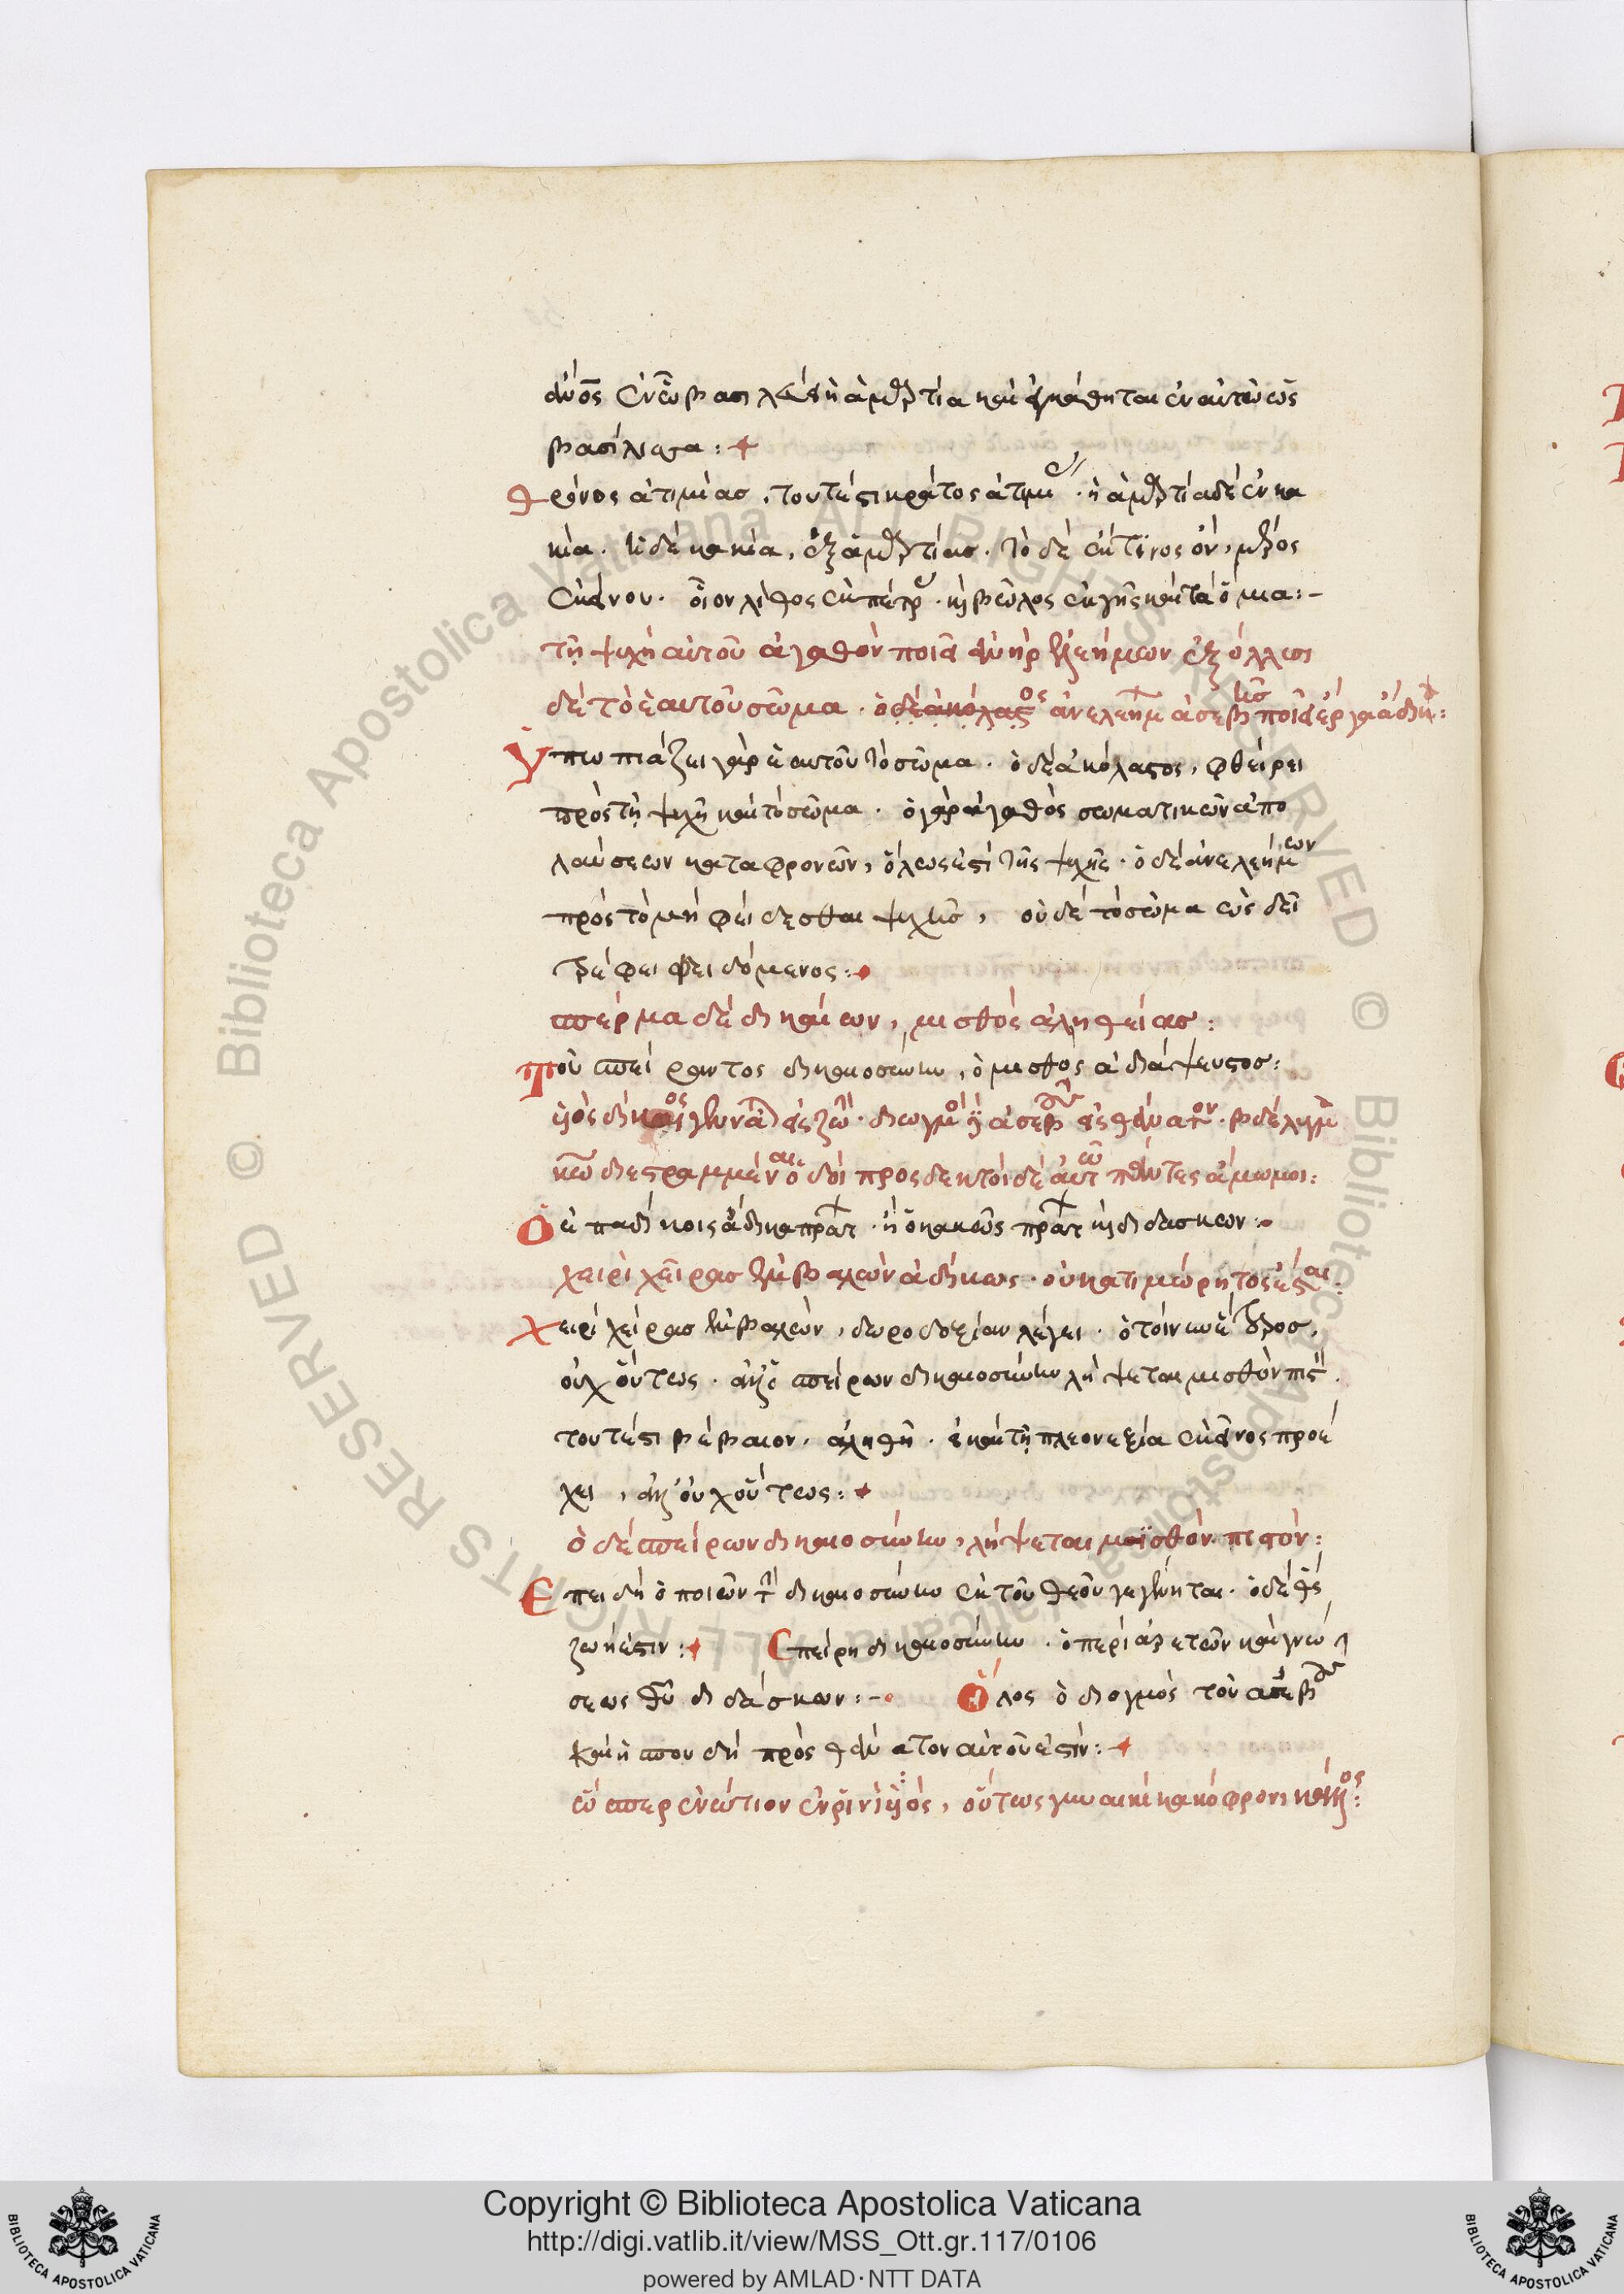 ἀνο͂ς ἐν ὧ βασιλεύει ἡ ἁμρτία καὶ ἐγκάθηται ἐν αὐτῶ ὡς
βασίλισσα:
Θρόνος ἀτιμίας, τουτέστι κράτος ἀτιμ · ἡ ἁμρτία δὲ ἐν κα
κία. ἡ δὲ κακία, ἐξ ἁμρτίας. τὸ δὲ ἔκ τινος ὂν, μέρος
ἐκείνου. οἷον λίθος ἐκ πέτρ · καὶ βῶλος ἐκ γῆς καὶ τὰ ὅμοια:-
τῇ ψυχῇ αὐτοῦ ἀγαθὸν ποιεῖ ἀνὴρ ἐλεήμων ἐξόλλυσι
δὲ τὸ ἑαυτοῦ σῶμα · ὁ δὲ ἀκόλαστος ἀνελεήμ ἀσεβὴς ποιεῖ ἔργα ἄδικ:
Ὑπωπιάζει γὰρ ἑαυτοῦ τὸ σῶμα · ὁ δὲ ἀκόλαστος, φθείρει
πρὸς τῇ ψυχῇ καὶ τὸ σῶμα · ὁ γὰρ ἀγαθὸς σωματικῶν ἀπο
λαύσεων καταφρονῶν, ἵλεώς ἐστι τῆς ψυχῆς · ὁ δὲ ἀνελεήμων
πρὸς τὸ μὴ φείδεσθαι ψυχῆς, οὐδὲ τὸ σῶμα ὡς δεῖ
τρέφει φειδόμενος:
σπέρμα δὲ δικαίων, μισθὸς ἀληθείας:
Τοῦ σπείραντος δικαιοσύνην, ὁ μισθὸς ἀδιάψευστος:
υἱὸς δίκαιος γεννᾶται εἰς ζωήν · διωγμὸ δὲ ἀσεβοῦς εἰς θάνατον · βδέλυγμα
κῶ διεστραμμέναι ὁδοὶ προσδεκτοὶ δὲ αὐτῶ πάντες ἄμωμοι:
Ὁ ἐπ' ἀδίκοις ἄδικα πράτ · ἢ ὁ κακῶς πράτ καὶ διδάσκων:
χειρὶ χεῖρας ἐμβαλὼν ἀδίκως · οὐκ ἀτιμώρητος ἔσται:
Χειρὶ χεῖρας ἐμβαλὼν, δωροδοξίαν λέγει · ὁ τοίνυν ἕτερος,
οὐχ οὕτως · ἀλλ' ὁ σπείρων δικαιοσύνην λήψεται μισθὸν πιστ.
τουτέστι βέβαιον, ἀληθῆ · εἰ καὶ τῇ πλεονεξία ἐκεῖνος προέ
χει, ἀλλ' οὐχ οὕτως:
ὁ δὲ σπείρων δικαιοσύνην, λήψεται μαϊσθὸν πιστόν:
Ἐπειδὴ ὁ ποιῶν τὴν δικαιοσύνην ἐκ τοῦ θεοῦ γεγέννηται · ὁ δὲ θς
ζωή ἐστιν: Σπείρη δικαιοσύνην · ὁ περὶ ἀρετῶν καὶ γνώ
σεως θυ διδάσκων:- Ὅλος ὁ διογμὸς τοῦ ἀσεβοῦς
καὶ ἡ σπουδὴ πρὸς θάνατον αὐτοῦ ἐστίν:
ὥσπερ ἐνώτιον ἐν ῥινὶ ὑὸς, οὕτως γυναικὶ κακόφρονι κάλλος:
Copyright © Biblioteca Apostolica Vaticana
http://digi.vatlib.it/view/MSS_Ott.gr.117/0106
powered by AMLAD·NTT DATA